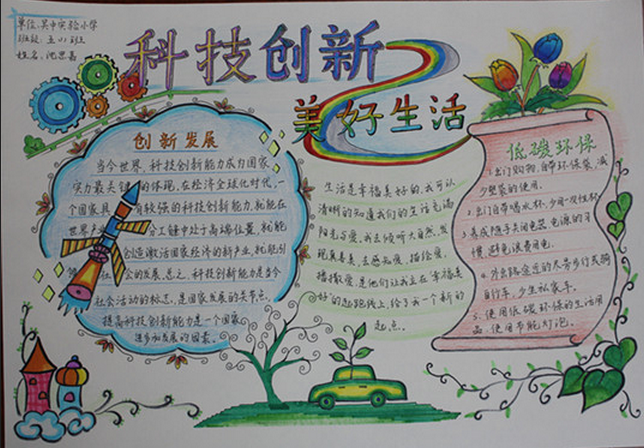 单位:吴中实验小学
班级:五(1)班
姓名:
科技创新
美好生活
创新发展
当今世界,科技创新能力成为国家
实力最关键的体现,在经济全球化时代,一
个国家具有较强的科技创新能力,就能在
世界产业分工链中处于高端位置,就能
创造激活国家经济的新产业,就能
社会的发展。总之,科技创新能力是当今
社会活动的标志,是国家发展的关节点,
提高科技创新能力是一个国家
进步和发展的因素。
生活是幸福美好的,我可以
清晰的知道我们的生活充满
阳光与爱,我去倾听大自然,发
现真善美,去感知爱,描绘爱,
播撒爱,是他们让我立在“幸福美
好”的起跑线上,给予我一个新的
起点。
低碳环保
1.出门购物,自带环保袋,减
少塑袋的使用。
2.出门自带喝水杯,少用一次性杯
3.养成随手关闭电器电源的习
惯,避免浪费用电。
4.外出路途近的尽量步行或骑
自行车,少坐私家车。
5.使用低碳环保的生活用
品,使用节能灯泡。